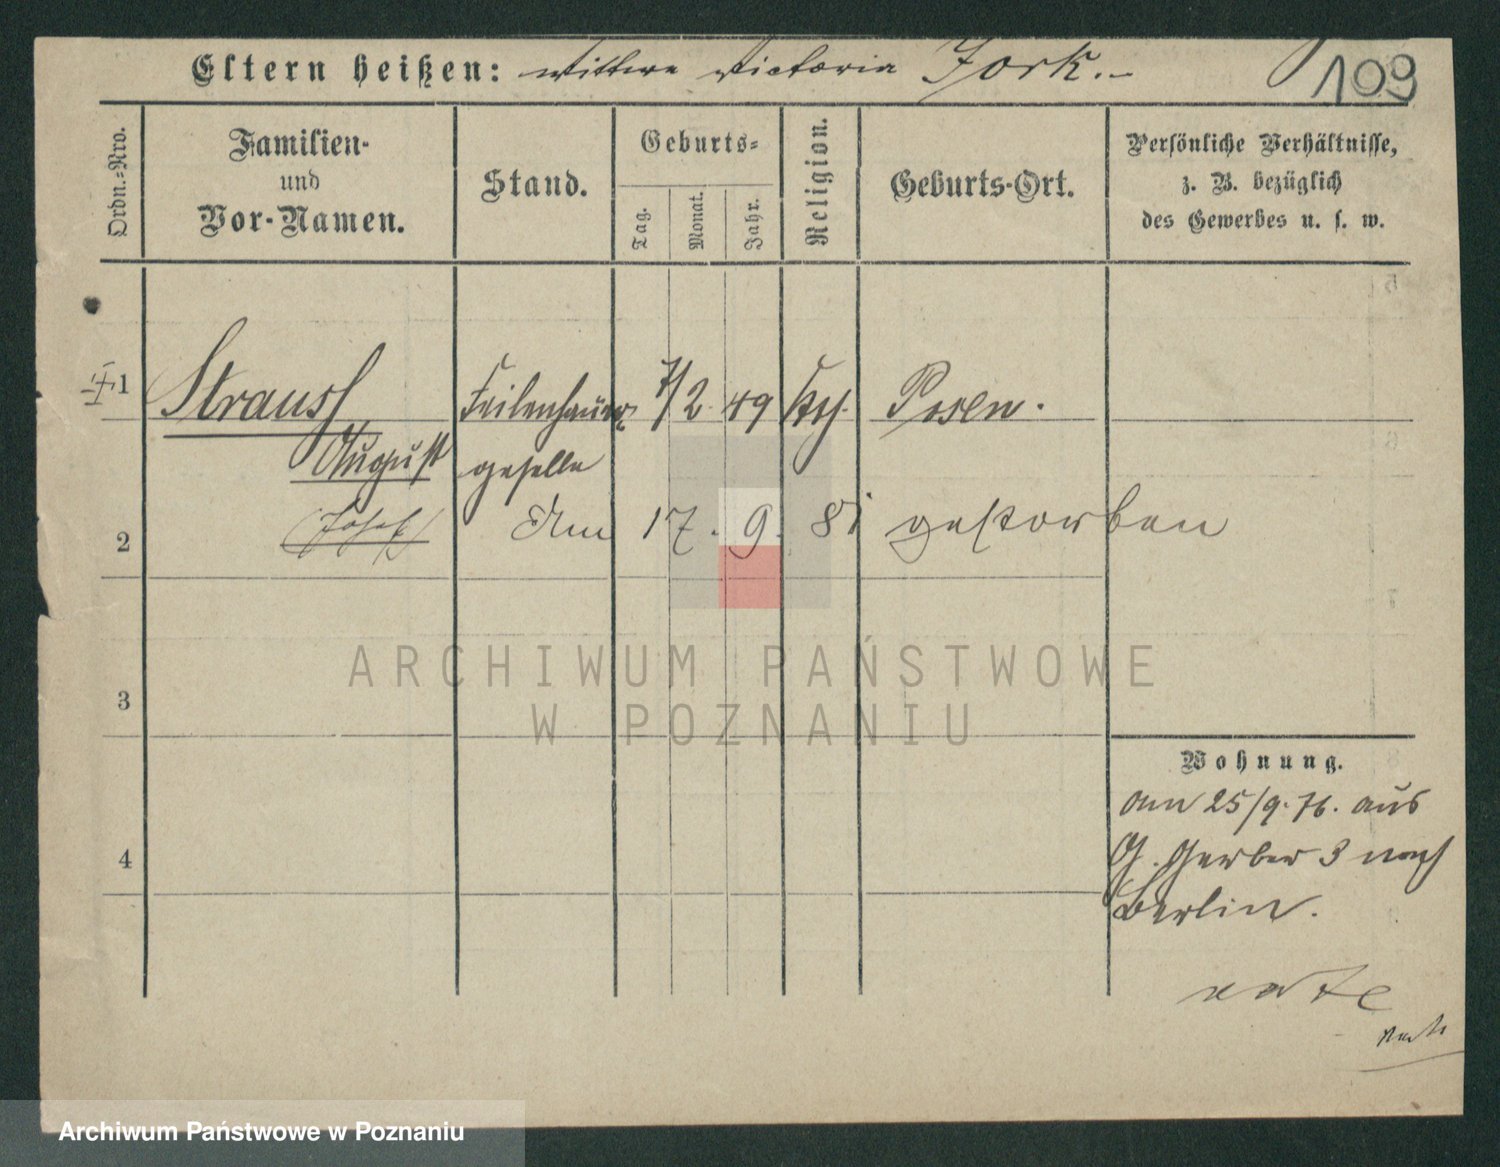 Eltern heißen: Wittwe Victoria York.-
109
Ordn.-Nro.
Familien-
und
Vor-Namen.
Stand.
Geburts-
Tag.
Monat.
Jahr.
Religion.
Geburts-Ort.
Persönliche Verhältnisse,
z. B. bezüglich
des Gewerbes u. s. w.
1 Strauss Feilenhauer 7/2. 49 kth. Posen.
August geselle
2 (Josef) Am 17. 9. 81 gestorben
3
4
Wohnung.
am 25/9. 76. aus
G. Gerber 3 nach
Berlin.
ARCHIWUM PAŃSTWOWE
W POZNANIU
Archiwum Państwowe w Poznaniu